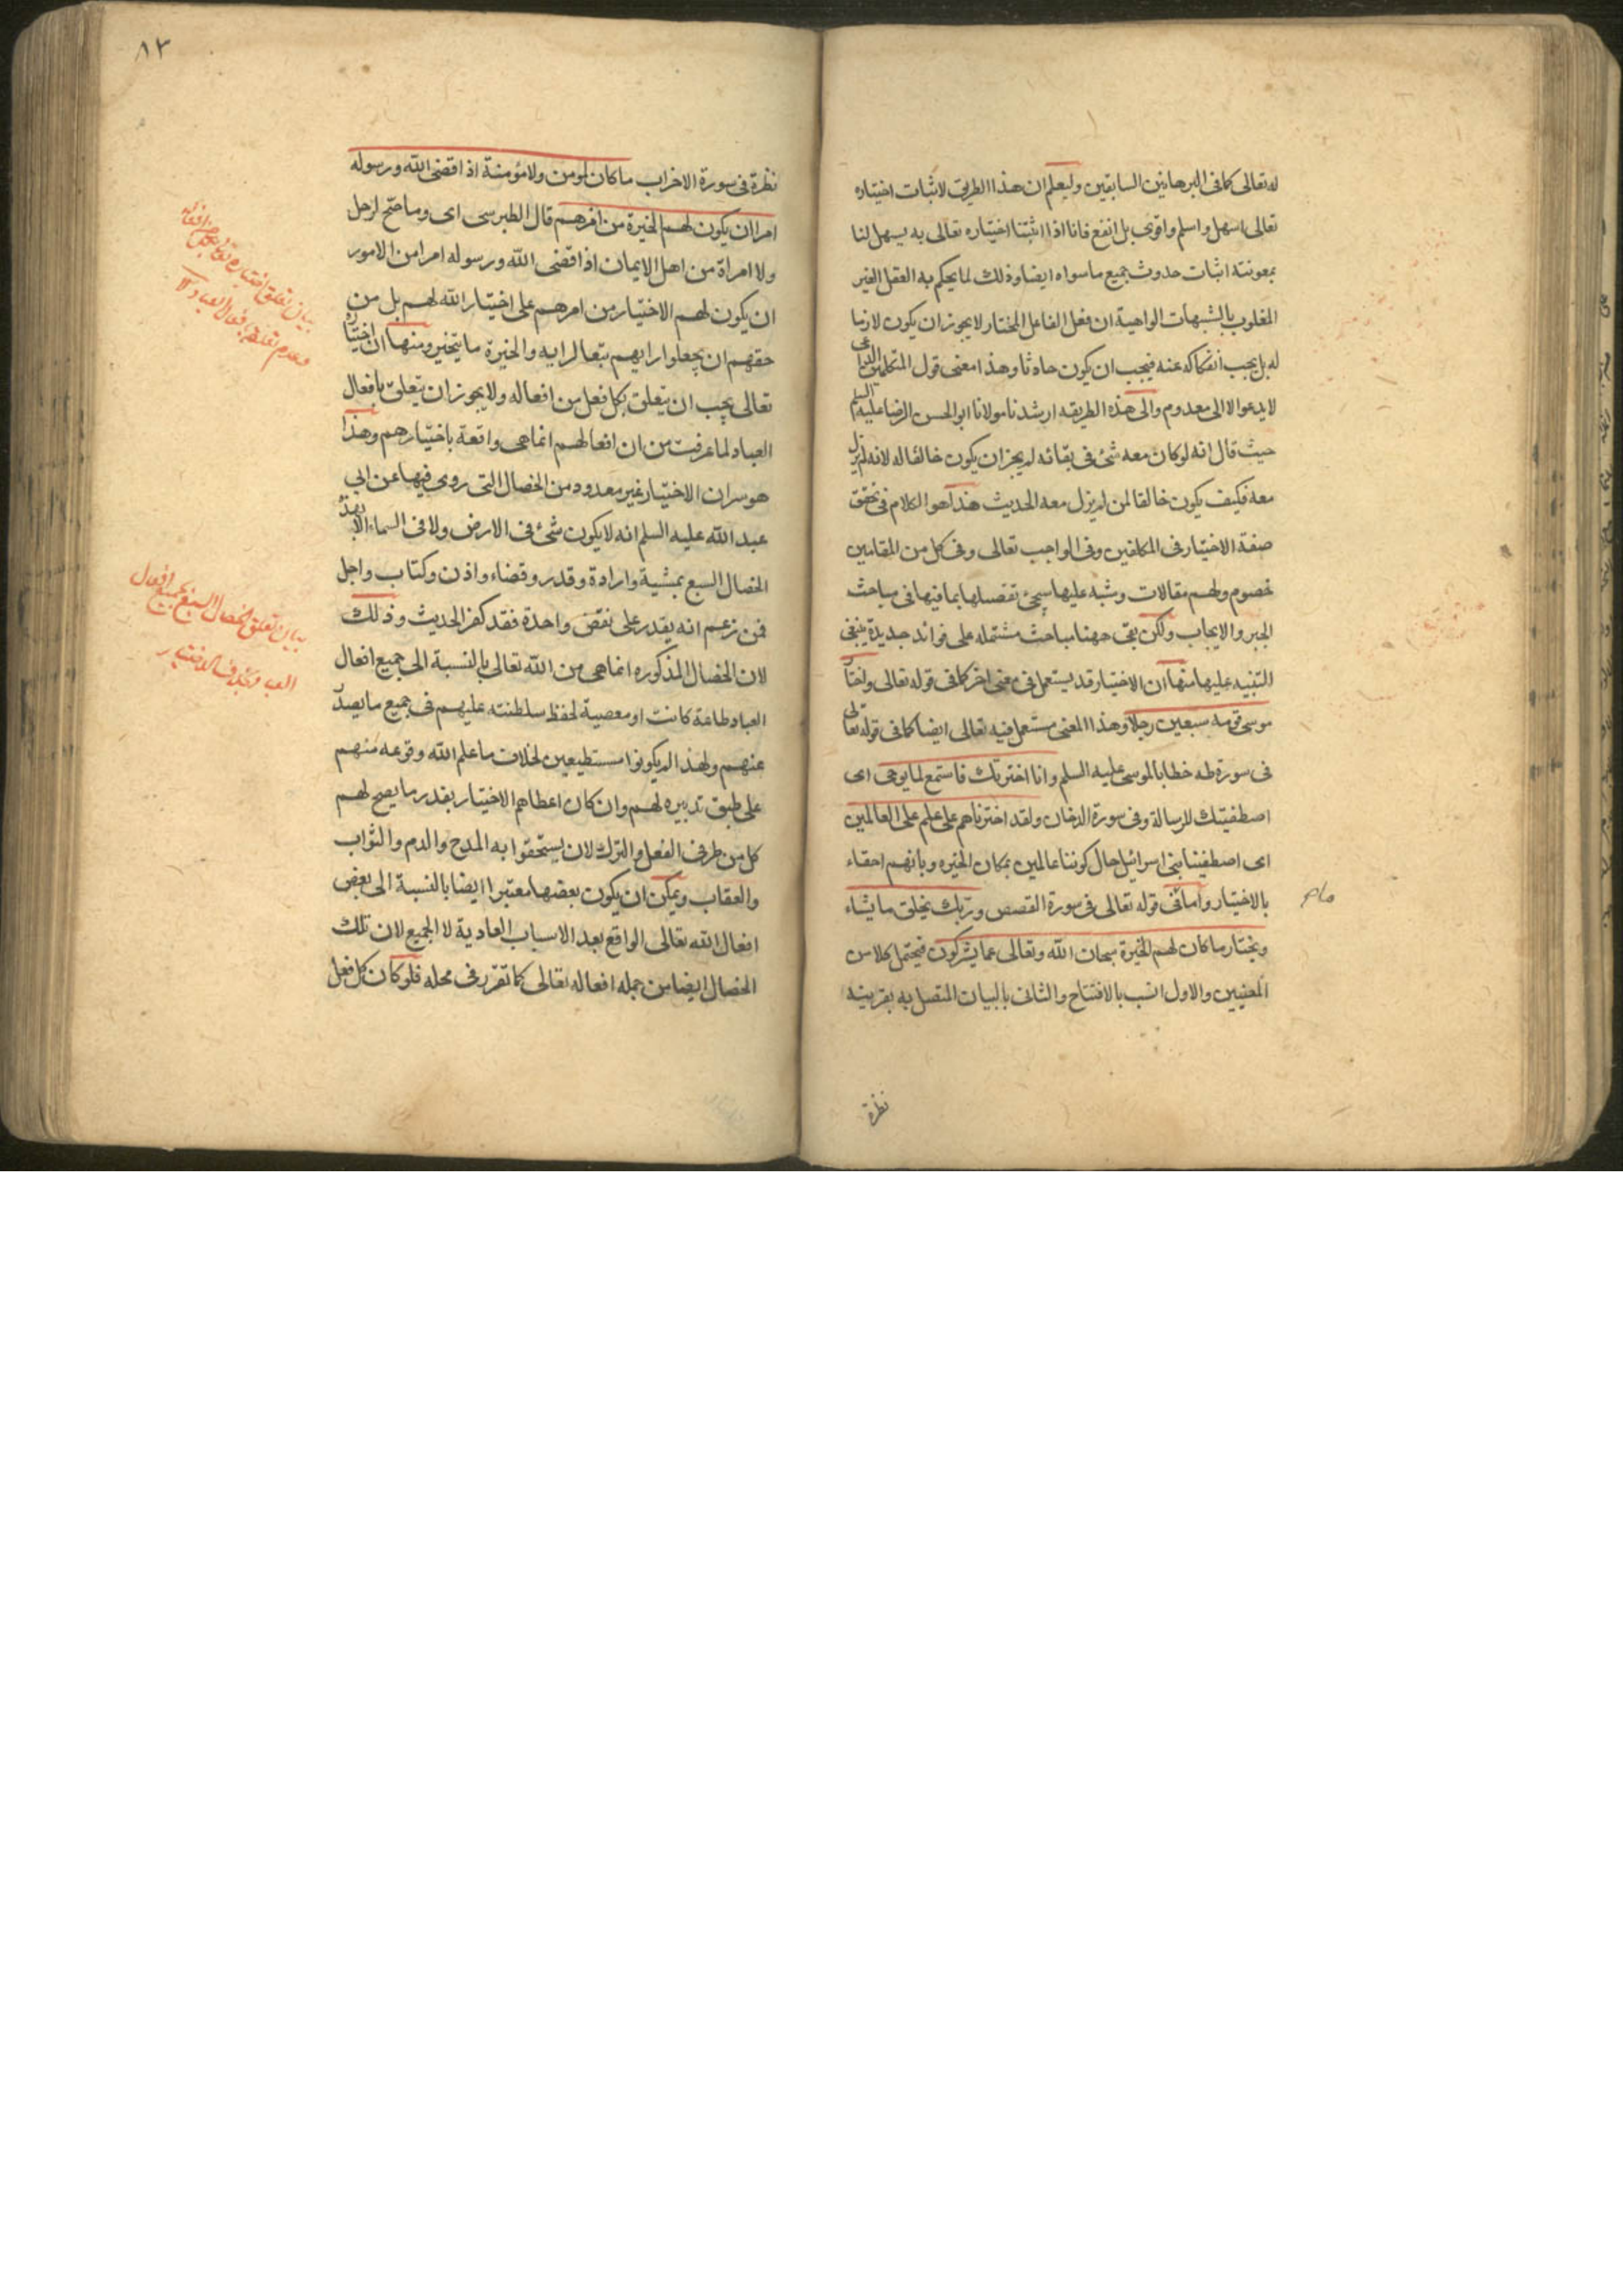 له تعالى كما فى البرهانين السابقين وليعلم ان هذا الطريق لاثبات اختياره
تعالى اسهل واسلم واقوى بل انفع فانا اذا اثبتنا اختياره تعالى به يسهل لنا
بمعونته اثبات حدوث جميع ما سواه ايضا وذلك لما يحكم به العقل الغير
المغلوب بالشبهات الواهية ان فعل الفاعل المختار لا يجوز ان يكون لازما
له بل يجب انفكاكه عنه فيجب ان يكون حادثا وهذا معنى قول المتكلمين الداعى
لا يدعو الا الى معدوم والى هذه الطريقه ارشدنا مولانا ابو الحسن الرضا عليه السلم
حيث قال انه لو كان معه شئ فى بقائه لم يجز ان يكون خالقا له لانه لم يزل
معه فكيف يكون خالقا لمن لم يزل معه الحديث هذا هو الكلام فى تحقق
صفة الاختيار فى المكلفين وفى الواجب تعالى وفى كل من المقامين
خصوم ولهم مقالات وشبه عليها سيجئ تفصيلها بما فيها فى مباحث
الجبر والايجاب ولكن بقى ههنا مباحث مشتمله على فوائد جديدة ينبغى
التنبيه عليها منها ان الاختيار قد يستعمل فى معنى اخر كما فى قوله تعالى واختار
موسى قومه سبعين رجلا وهذا المعنى مستعمل فيه تعالى ايضا كما فى قوله تعالى
فى سورة طه خطابا لموسى عليه السلم وانا اخترتك فاستمع لما يوحى اى
اصطفيتك للرسالة وفى سورة الدخان ولقد اخترناهم على علم على العالمين
اى اصطفينا بنى اسرائيل حال كوننا عالمين بمكان الخيره وبانهم احقاء
بالاختيار واما فى قوله تعالى فى سورة القصص وربك يخلق ما يشاء
ويختار ما كان لهم الخيرة سبحان الله وتعالى عما يشركون فيحتمل كلا من
المعنيين والاول انسب بالافتتاح والثانى بالبيان المتصل به بقرينه
نظرة
٨٢
نظرة فى سورة الاحزاب ما كان لمومن ولا مؤمنة اذا قضى الله ورسوله
امرا ان يكون لهم الخيرة من امرهم قال الطبرسى اى وما صح لرجل
ولا امراة من اهل الايمان اذا قضى الله ورسوله امرا من الامور
ان يكون لهم الاختيار من امرهم على اختيار الله لهم بل من
حقهم ان يجعلوا رايهم تبعا لرايه والخيرة ما يتخير ومنها ان اختياره
تعالى يجب ان يتعلق بكل فعل من افعاله ولا يجوز ان يتعلق بافعال
العباد لما عرفت من ان افعالهم انما هى واقعة باختيارهم وهذا
هو سر ان الاختيار غير معدود من الخصال التى روى فيها عن ابى
عبد الله عليه السلم انه لا يكون شئ فى الارض ولا فى السماء الا بهذه
الخصال السبع بمشية وارادة وقدر وقضاء واذن وكتاب واجل
فمن زعم انه يقدر على نقض واحدة فقد كفر الحديث وذلك
لان الخصال المذكوره انما هى من الله تعالى بالنسبة الى جميع افعال
العباد طاعة كانت او معصية لحفظ سلطنته عليهم فى جميع ما يصدر
عنهم ولهذا لم يكونوا مستطيعين لخلاف ما علم الله وقوعه منهم
على طبق تدبيره لهم وان كان اعطاهم الاختيار بقدر ما يصح لهم
كل من طرفى الفعل والترك لان يستحقوا به المدح والذم والثواب
والعقاب ويمكن ان يكون بعضها معتبرا ايضا بالنسبة الى بعض
افعال الله تعالى الواقع بعد الاسباب العادية لا الجميع لان تلك
الخصال ايضا من جمله افعاله تعالى كما تقرر فى محله فلو كان كل فعل
بيان تعلق اختياره تعالى
وعدم تعلقه بافعال العباد
بيان تعلق الخصال السبع بجميع افعال
العباد